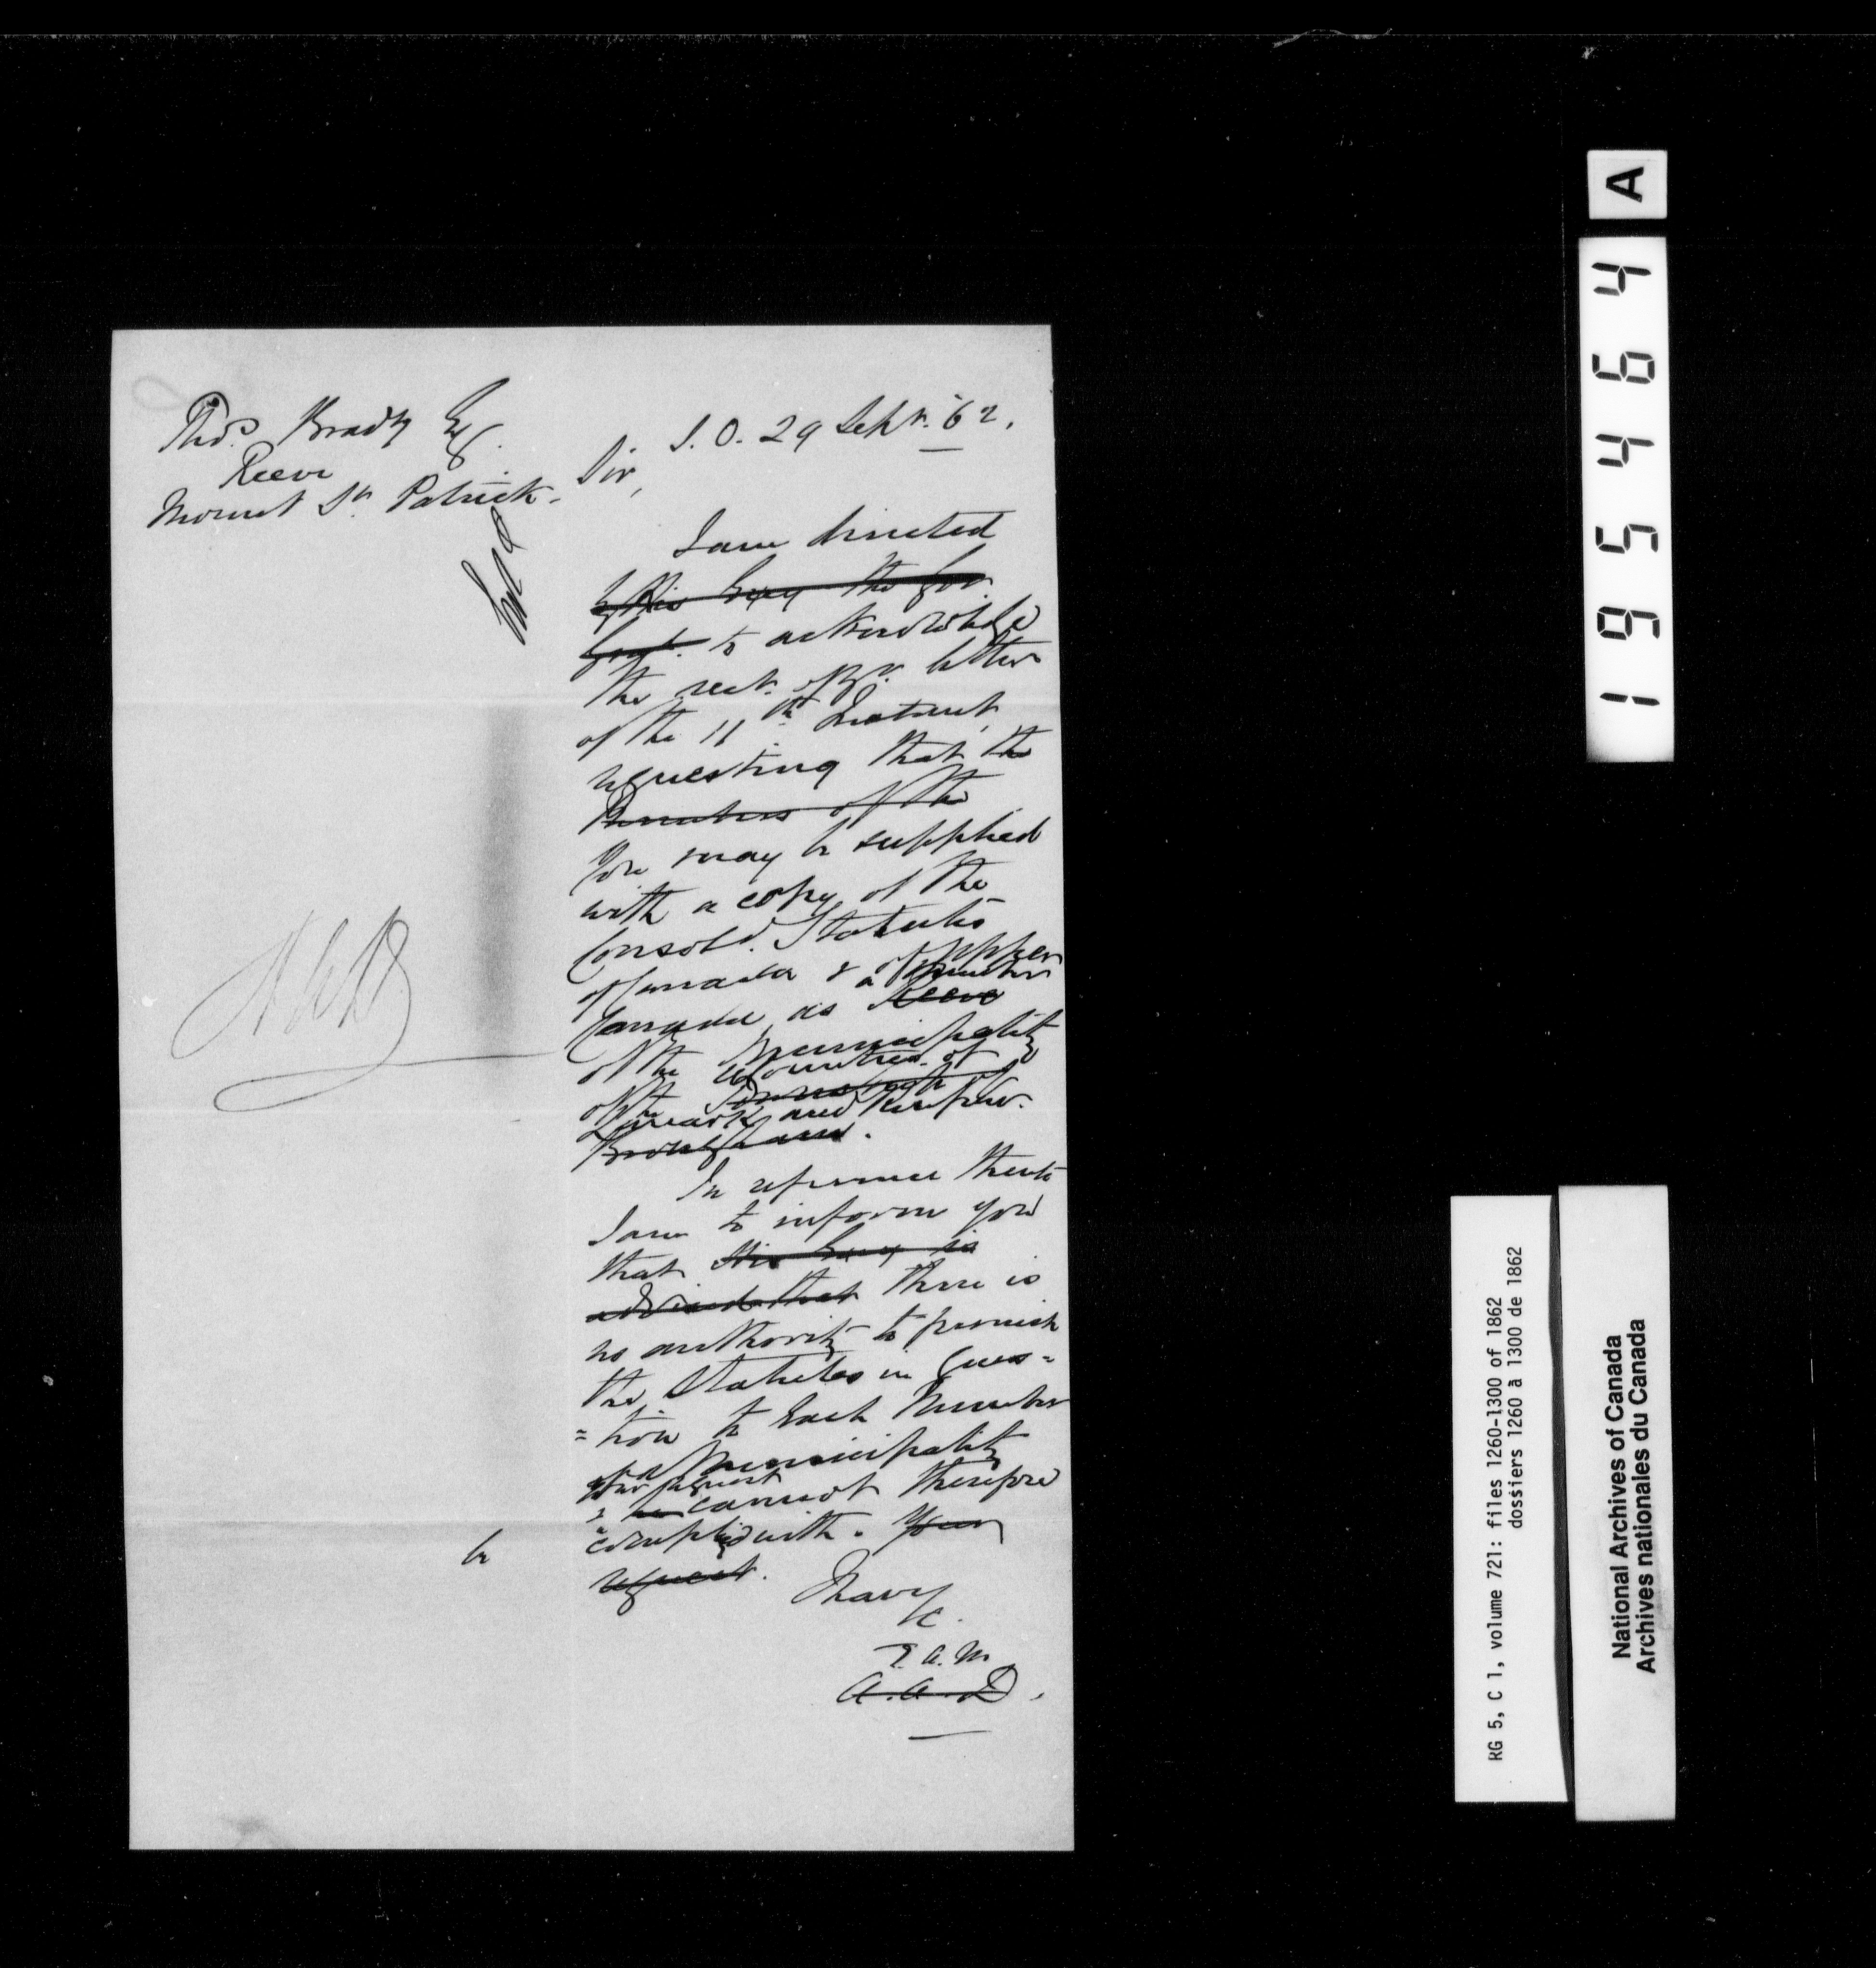 Thos. Brady Esq.
Reeve
Mount St. Patrick.
S.O. 29 Septr. '62.
Sir,
I am directed
by His Excy the Gov.
Genl. to acknowledge
the rect. of yr. letter
of the 11th Instant,
requesting that the
Members of the
You may be supplied
with a copy of the
Consold. Statutes
of Canada & of Upper
Canada as a Member
Reeve
of the Municipality
of the Counties of
of the Township of
Lanark and Renfrew.
Brougham.
In reference thereto
I am to inform you
that His Excy is
advised that there is
no authority to furnish
the Statutes in Ques=
=tion to each Member
of a Municipality
Your request
& he cannot therefore
be
complied with. Your
request.
I have
&c.
E. A. M.
A. A. D.
A
195464
RG 5, C 1, volume 721: files 1260-1300 of 1862
dossiers 1260 à 1300 de 1862
National Archives of Canada
Archives nationales du Canada